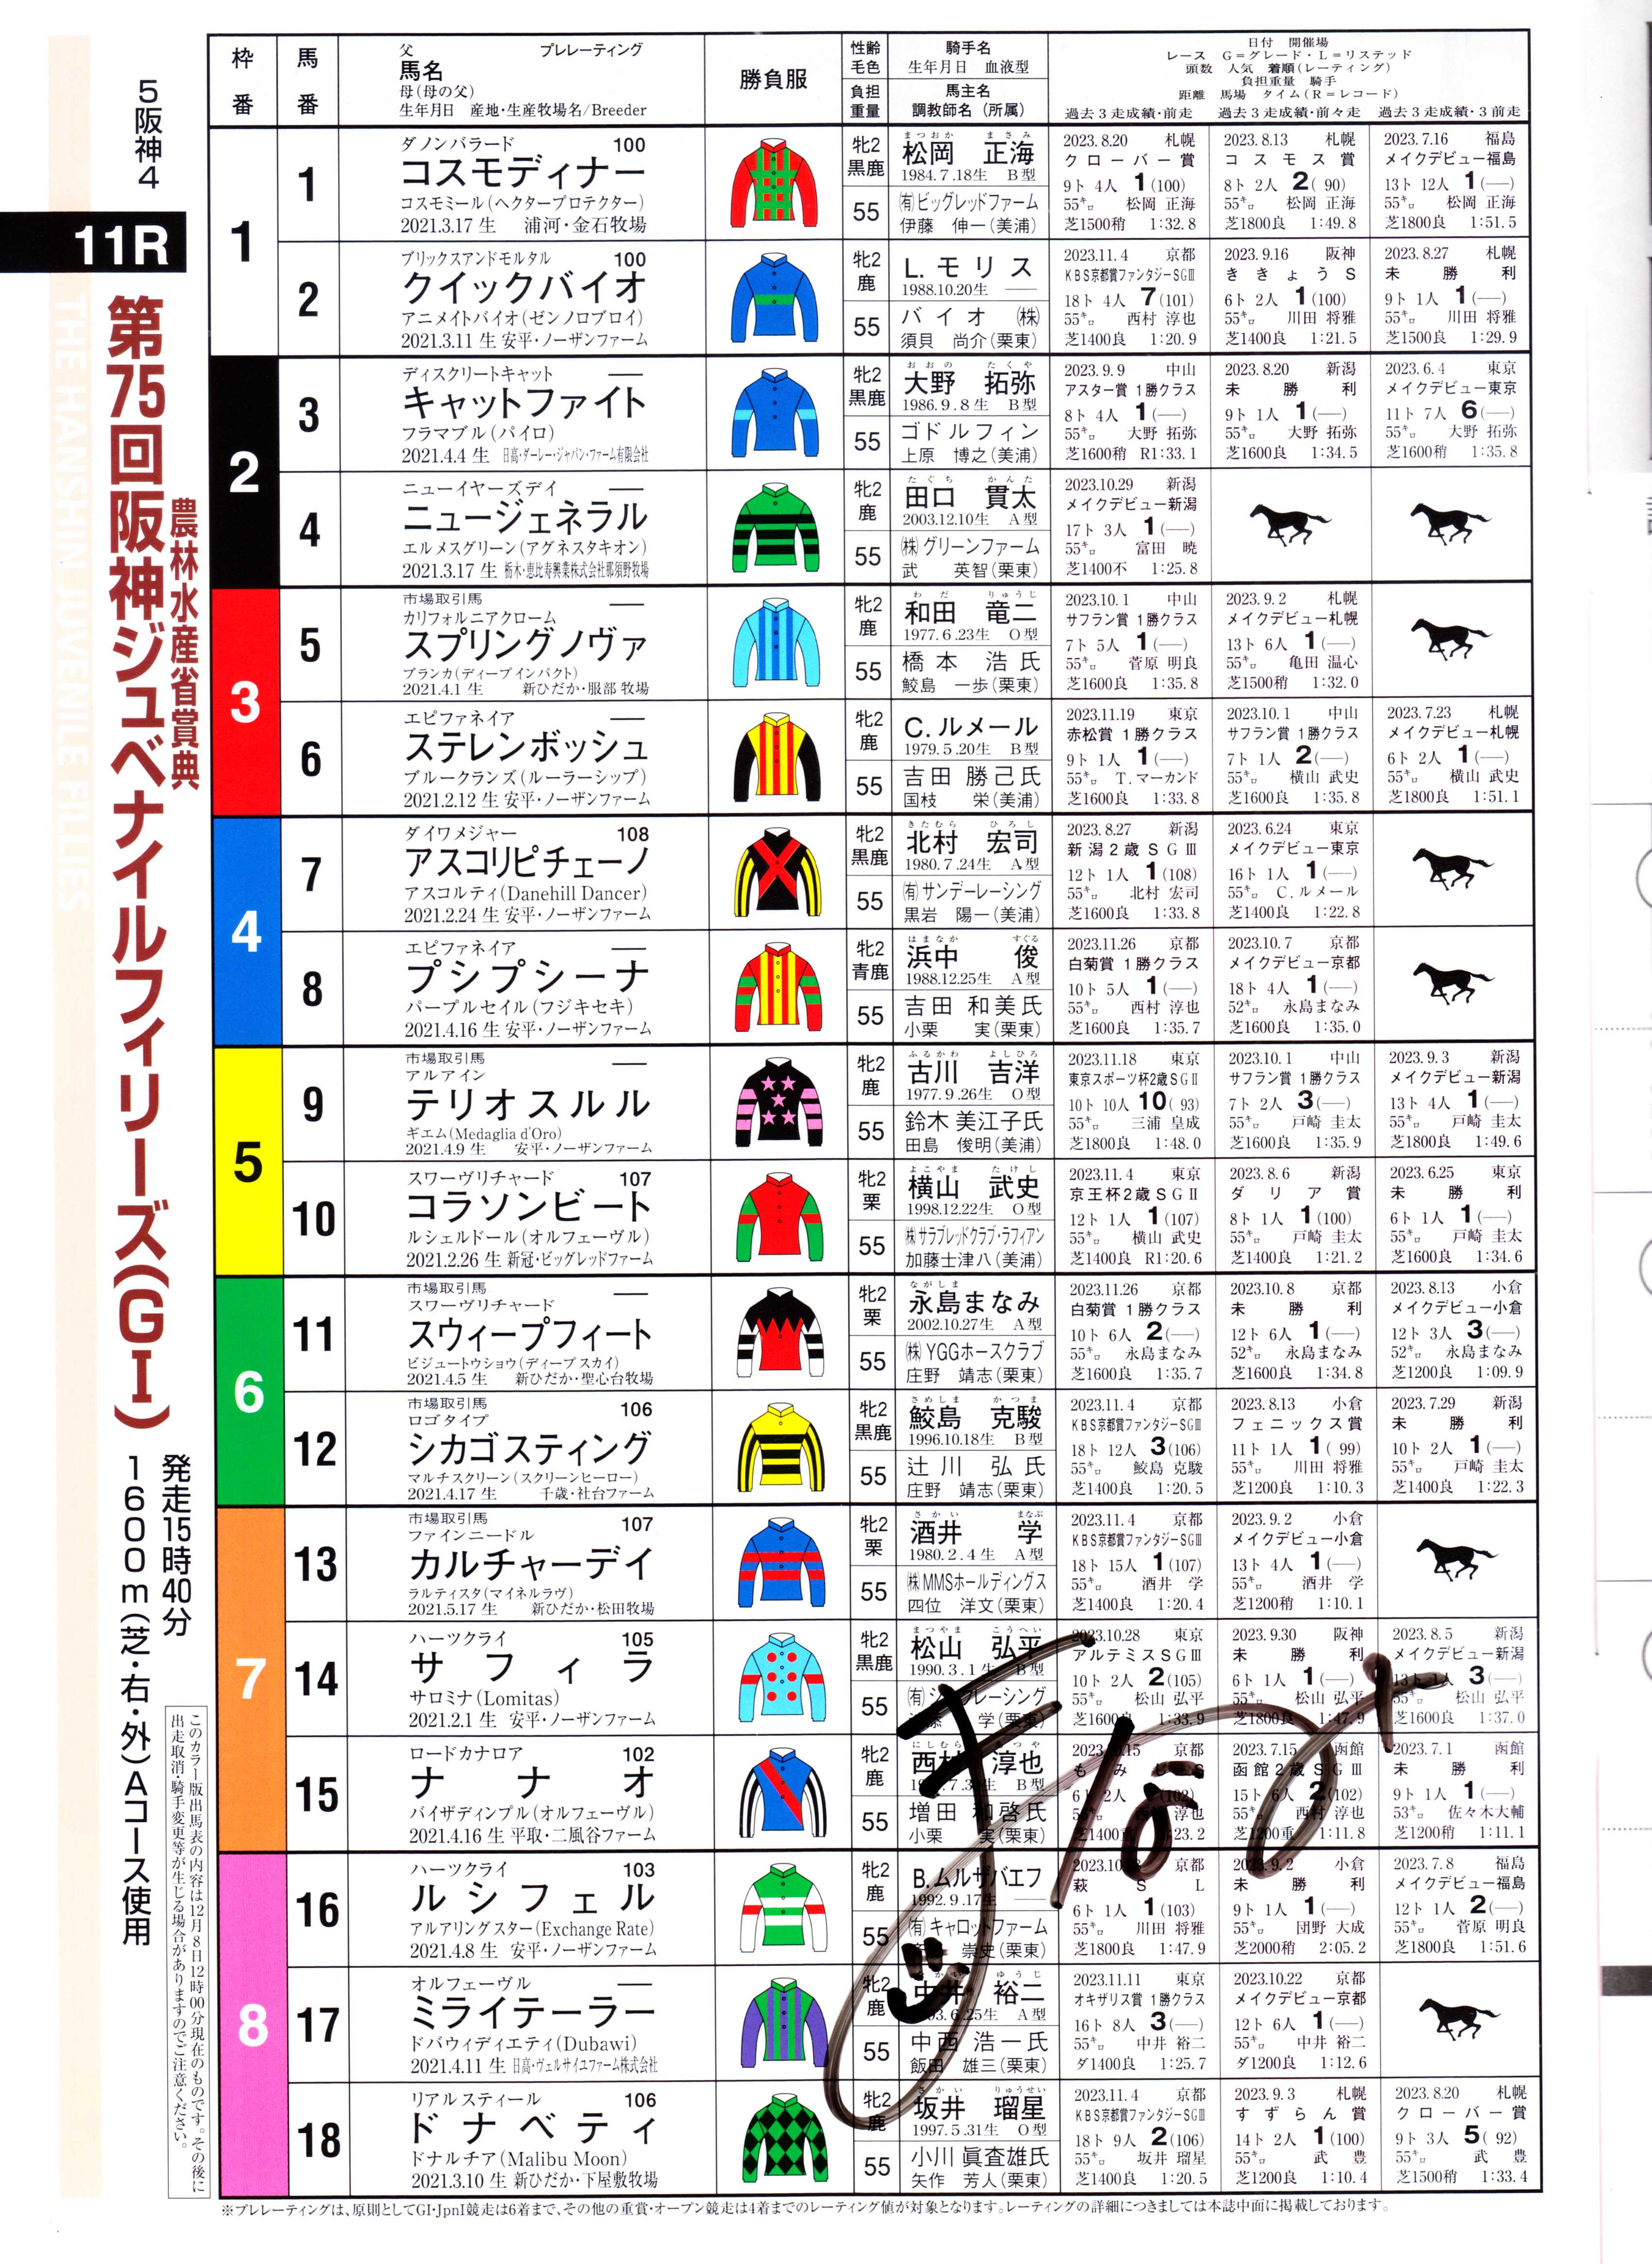 5阪神4
11R
THE HANSHIN JUVENILE FILLIES
農林水産省賞典
第75回阪神ジュベナイルフィリーズ(GI)
発走15時40分
1600m(芝・右・外)Aコース使用
このカラー版出馬表の内容は12月8日12時00分現在のものです。その後に
出走取消・騎手変更等が生じる場合がありますのでご注意ください。
枠番 馬番
父 プレレーティング
馬名
母(母の父)
生年月日 産地・生産牧場名/Breeder
勝負服
性齢 毛色
負担 重量
騎手名
生年月日 血液型
馬主名
調教師名(所属)
日付 開催場
レース G=グレード・L=リステッド
頭数 人気 着順(レーティング)
負担重量 騎手
距離 馬場 タイム(R=レコード)
過去3走成績・前走 過去3走成績・前々走 過去3走成績・3前走
1
1
ダノンバラード 100
コスモディナー
コスモミール(ヘクタープロテクター)
2021.3.17生 浦河・金石牧場
牝2 黒鹿 55
まつおか まさみ
松岡 正海
1984.7.18生 B型
㈲ビッグレッドファーム
伊藤 伸一(美浦)
2023.8.20 札幌
クローバー賞
9ト 4人 1(100)
55キロ 松岡 正海
芝1500稍 1:32.8
2023.8.13 札幌
コスモス賞
8ト 2人 2( 90)
55キロ 松岡 正海
芝1800良 1:49.8
2023.7.16 福島
メイクデビュー福島
13ト 12人 1(──)
55キロ 松岡 正海
芝1800良 1:51.5
2
ブリックスアンドモルタル 100
クイックバイオ
アニメイトバイオ(ゼンノロブロイ)
2021.3.11生 安平・ノーザンファーム
牝2 鹿 55
L.モリス
1988.10.20生 ──
バイオ㈱
須貝 尚介(栗東)
2023.11.4 京都
KBS京都賞ファンタジーSGⅢ
18ト 4人 7(101)
55キロ 西村 淳也
芝1400良 1:20.9
2023.9.16 阪神
ききょうS
6ト 2人 1(100)
55キロ 川田 将雅
芝1400良 1:21.5
2023.8.27 札幌
未勝利
9ト 1人 1(──)
55キロ 川田 将雅
芝1500良 1:29.9
2
3
ディスクリートキャット ──
キャットファイト
フラマブル(パイロ)
2021.4.4生 日高・ダーレー・ジャパン・ファーム有限会社
牝2 黒鹿 55
おおの たくや
大野 拓弥
1986.9.8生 B型
ゴドルフィン
上原 博之(美浦)
2023.9.9 中山
アスター賞 1勝クラス
8ト 4人 1(──)
55キロ 大野 拓弥
芝1600稍 R1:33.1
2023.8.20 新潟
未勝利
9ト 1人 1(──)
55キロ 大野 拓弥
芝1600良 1:34.5
2023.6.4 東京
メイクデビュー東京
11ト 7人 6(──)
55キロ 大野 拓弥
芝1600稍 1:35.8
4
ニューイヤーズデイ ──
ニュージェネラル
エルメスグリーン(アグネスタキオン)
2021.3.17生 栃木・恵比寿興業株式会社那須野牧場
牝2 鹿 55
たぐち かんた
田口 貫太
2003.12.10生 A型
㈱グリーンファーム
武 英智(栗東)
2023.10.29 新潟
メイクデビュー新潟
17ト 3人 1(──)
55キロ 富田 暁
芝1400不 1:25.8
3
5
市場取引馬 ──
カリフォルニアクローム
スプリングノヴァ
ブランカ(ディープインパクト)
2021.4.1生 新ひだか・服部 牧場
牝2 鹿 55
わだ りゅうじ
和田 竜二
1977.6.23生 O型
橋本 浩氏
鮫島 一歩(栗東)
2023.10.1 中山
サフラン賞 1勝クラス
7ト 5人 1(──)
55キロ 菅原 明良
芝1600良 1:35.8
2023.9.2 札幌
メイクデビュー札幌
13ト 6人 1(──)
55キロ 亀田 温心
芝1500稍 1:32.0
6
エピファネイア ──
ステレンボッシュ
ブルークランズ(ルーラーシップ)
2021.2.12生 安平・ノーザンファーム
牝2 鹿 55
C.ルメール
1979.5.20生 B型
吉田 勝己氏
国枝 栄(美浦)
2023.11.19 東京
赤松賞 1勝クラス
9ト 1人 1(──)
55キロ T.マーカンド
芝1600良 1:33.8
2023.10.1 中山
サフラン賞 1勝クラス
7ト 1人 2(──)
55キロ 横山 武史
芝1600良 1:35.8
2023.7.23 札幌
メイクデビュー札幌
6ト 2人 1(──)
55キロ 横山 武史
芝1800良 1:51.1
4
7
ダイワメジャー 108
アスコリピチェーノ
アスコルティ(Danehill Dancer)
2021.2.24生 安平・ノーザンファーム
牝2 黒鹿 55
きたむら ひろし
北村 宏司
1980.7.24生 A型
㈲サンデーレーシング
黒岩 陽一(美浦)
2023.8.27 新潟
新潟2歳SGⅢ
12ト 1人 1(108)
55キロ 北村 宏司
芝1600良 1:33.8
2023.6.24 東京
メイクデビュー東京
16ト 1人 1(──)
55キロ C.ルメール
芝1400良 1:22.8
8
エピファネイア ──
プシプシーナ
パープルセイル(フジキセキ)
2021.4.16生 安平・ノーザンファーム
牝2 青鹿 55
はまなか すぐる
浜中 俊
1988.12.25生 A型
吉田 和美氏
小栗 実(栗東)
2023.11.26 京都
白菊賞 1勝クラス
10ト 5人 1(──)
55キロ 西村 淳也
芝1600良 1:35.7
2023.10.7 京都
メイクデビュー京都
18ト 4人 1(──)
52キロ 永島まなみ
芝1600良 1:35.0
5
9
市場取引馬 ──
アルアイン
テリオスルル
ギエム(Medaglia d'Oro)
2021.4.9生 安平・ノーザンファーム
牝2 鹿 55
ふるかわ よしひろ
古川 吉洋
1977.9.26生 O型
鈴木 美江子氏
田島 俊明(美浦)
2023.11.18 東京
東京スポーツ杯2歳SGⅡ
10ト 10人 10( 93)
55キロ 三浦 皇成
芝1800良 1:48.0
2023.10.1 中山
サフラン賞 1勝クラス
7ト 2人 3(──)
55キロ 戸崎 圭太
芝1600良 1:35.9
2023.9.3 新潟
メイクデビュー新潟
13ト 4人 1(──)
55キロ 戸崎 圭太
芝1800良 1:49.6
10
スワーヴリチャード 107
コラソンビート
ルシェルドール(オルフェーヴル)
2021.2.26 新冠・ビッグレッドファーム
牝2 栗 55
よこやま たけし
横山 武史
1998.12.22生 O型
㈱サラブレッドクラブ・ラフィアン
加藤士津八(美浦)
2023.11.4 東京
京王杯2歳SGⅡ
12ト 1人 1(107)
55キロ 横山 武史
芝1400良 R1:20.6
2023.8.6 新潟
ダリア賞
8ト 1人 1(100)
55キロ 戸崎 圭太
芝1400良 1:21.2
2023.6.25 東京
未勝利
6ト 1人 1(──)
55キロ 戸崎 圭太
芝1600良 1:34.6
6
11
市場取引馬 ──
スワーヴリチャード
スウィープフィート
ビジュートウショウ(ディープスカイ)
2021.4.5生 新ひだか・聖心台牧場
牝2 栗 55
ながしま
永島まなみ
2002.10.27生 A型
㈱YGGホースクラブ
庄野 靖志(栗東)
2023.11.26 京都
白菊賞 1勝クラス
10ト 6人 2(──)
55キロ 永島まなみ
芝1600良 1:35.7
2023.10.8 京都
未勝利
12ト 6人 1(──)
52キロ 永島まなみ
芝1600良 1:34.8
2023.8.13 小倉
メイクデビュー小倉
12ト 3人 3(──)
52キロ 永島まなみ
芝1200良 1:09.9
12
市場取引馬 106
ロゴタイプ
シカゴスティング
マルチスクリーン(スクリーンヒーロー)
2021.4.17生 千歳・社台ファーム
牝2 黒鹿 55
さめしま かつま
鮫島 克駿
1996.10.18生 B型
辻川 弘氏
庄野 靖志(栗東)
2023.11.4 京都
KBS京都賞ファンタジーSGⅢ
18ト 12人 3(106)
55キロ 鮫島 克駿
芝1400良 1:20.5
2023.8.13 小倉
フェニックス賞
11ト 1人 1( 99)
55キロ 川田 将雅
芝1200良 1:10.3
2023.7.29 新潟
未勝利
10ト 2人 1(──)
55キロ 戸崎 圭太
芝1400良 1:22.3
7
13
市場取引馬 107
ファインニードル
カルチャーデイ
ラルティスタ(マイネルラヴ)
2021.5.17生 新ひだか・松田牧場
牝2 栗 55
さかい まなぶ
酒井 学
1980.2.4生 A型
㈱MMSホールディングス
四位 洋文(栗東)
2023.11.4 京都
KBS京都賞ファンタジーSGⅢ
18ト 15人 1(107)
55キロ 酒井 学
芝1400良 1:20.4
2023.9.2 小倉
メイクデビュー小倉
13ト 4人 1(──)
55キロ 酒井 学
芝1200稍 1:10.1
14
ハーツクライ 105
サフィラ
サロミナ(Lomitas)
2021.2.1生 安平・ノーザンファーム
牝2 黒鹿 55
まつやま こうへい
松山 弘平
1990.3.1生 B型
レーシング
学(栗東)
2023.10.28 東京
アルテミスSGⅢ
10ト 2人 2(105)
55キロ 松山 弘平
芝1600良 1:33.9
2023.9.30 阪神
未勝利
6ト 1人 1(──)
55キロ 松山 弘平
芝1800良 1:47.9
2023.8.5 新潟
メイクデビュー新潟
13ト 1人 3(──)
55キロ 松山 弘平
芝1600良 1:37.0
15
ロードカナロア 102
ナナオ
バイザディンプル(オルフェーヴル)
2021.4.16生 平取・二風谷ファーム
牝2 鹿 55
にしむら
西村 淳也
B型
増田 和啓氏
小栗 実(栗東)
京都
もみじS
6ト 2人 (102)
淳也
芝1400重
2023.7.15 函館
函館2歳SGⅢ
15ト 6人 2(102)
55キロ 西村 淳也
芝1200重 1:11.8
2023.7.1 函館
未勝利
9ト 1人 1(──)
53キロ 佐々木大輔
芝1200稍 1:11.1
8
16
ハーツクライ 103
ルシフェル
アルアリングスター(Exchange Rate)
2021.4.8生 安平・ノーザンファーム
牝2 鹿 55
B.ムルザバエフ
1992.9.17生 ──
㈲キャロットファーム
崇史(栗東)
京都
萩S L
6ト 1人 1(103)
55キロ 川田 将雅
芝1800良 1:47.9
2023.9.2 小倉
未勝利
9ト 1人 1(──)
55キロ 団野 大成
芝2000稍 2:05.2
2023.7.8 福島
メイクデビュー福島
12ト 1人 2(──)
55キロ 菅原 明良
芝1800良 1:51.6
17
オルフェーヴル ──
ミライテーラー
ドバウィディエティ(Dubawi)
2021.4.11生 日高・ヴェルサイユファーム株式会社
牝2 鹿 55
ゆうじ
中井 裕二
A型
中西 浩一氏
飯田 雄三(栗東)
2023.11.11 東京
オキザリス賞 1勝クラス
16ト 8人 3(──)
55キロ 中井 裕二
ダ1400良 1:25.7
2023.10.22 京都
メイクデビュー京都
12ト 6人 1(──)
55キロ 中井 裕二
ダ1200良 1:12.6
18
リアルスティール 106
ドナベティ
ドナルチア(Malibu Moon)
2021.3.10生 新ひだか・下屋敷牧場
牝2 鹿 55
さかい りゅうせい
坂井 瑠星
1997.5.31生 O型
小川 眞査雄氏
矢作 芳人(栗東)
2023.11.4 京都
KBS京都賞ファンタジーSGⅢ
18ト 9人 2(106)
55キロ 坂井 瑠星
芝1400良 1:20.5
2023.9.3 札幌
すずらん賞
14ト 2人 1(100)
55キロ 武 豊
芝1200良 1:10.4
2023.8.20 札幌
クローバー賞
9ト 3人 5( 92)
55キロ 武 豊
芝1500稍 1:33.4
※プレレーティングは、原則としてGI・JpnI競走は6着まで、その他の重賞・オープン競走は4着までのレーティング値が対象となります。レーティングの詳細につきましては本誌中面に掲載しております。